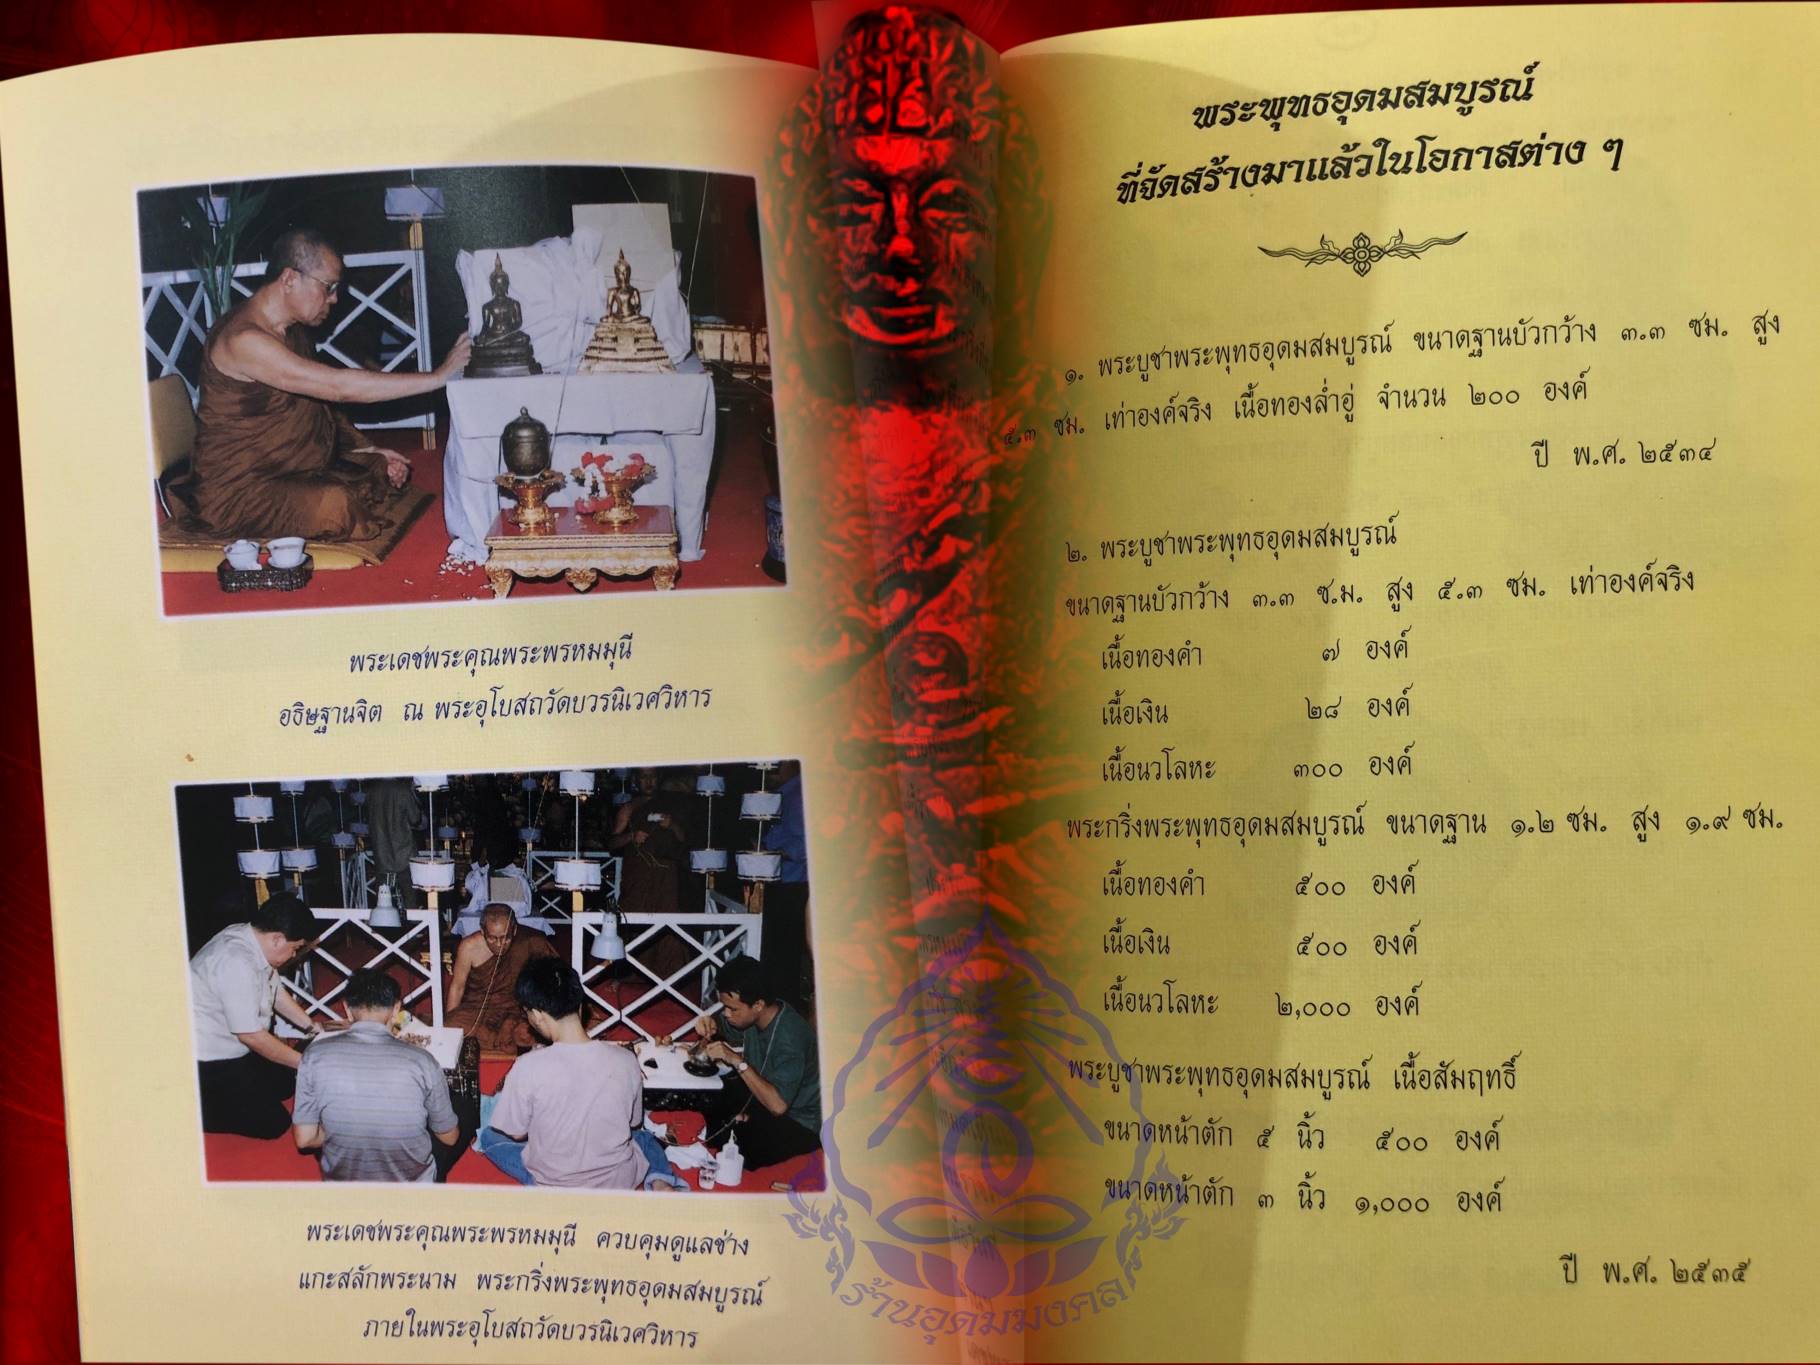 พระเดชพระคุณพระพรหมมุนี
อธิษฐานจิต ณ พระอุโบสถวัดบวรนิเวศวิหาร
พระเดชพระคุณพระพรหมมุนี ควบคุมดูแลช่าง
แกะสลักพระนาม พระกริ่งพระพุทธอุดมสมบูรณ์
ภายในพระอุโบสถวัดบวรนิเวศวิหาร
พระพุทธอุดมสมบูรณ์
ที่จัดสร้างมาแล้วในโอกาสต่าง ๆ
๑. พระบูชาพระพุทธอุดมสมบูรณ์ ขนาดฐานบัวกว้าง ๓.๓ ซม. สูง
๕.๓ ซม. เท่าองค์จริง เนื้อทองล่ำอู่ จำนวน ๒๐๐ องค์
ปี พ.ศ. ๒๕๓๔
๒. พระบูชาพระพุทธอุดมสมบูรณ์
ขนาดฐานบัวกว้าง ๓.๓ ซ.ม. สูง ๕.๓ ซม. เท่าองค์จริง
เนื้อทองคำ ๗ องค์
เนื้อเงิน ๒๘ องค์
เนื้อนวโลหะ ๓๐๐ องค์
พระกริ่งพระพุทธอุดมสมบูรณ์ ขนาดฐาน ๑.๒ ซม. สูง ๑.๙ ซม.
เนื้อทองคำ ๕๐๐ องค์
เนื้อเงิน ๕๐๐ องค์
เนื้อนวโลหะ ๒,๐๐๐ องค์
พระบูชาพระพุทธอุดมสมบูรณ์ เนื้อสัมฤทธิ์
ขนาดหน้าตัก ๕ นิ้ว ๕๐๐ องค์
ขนาดหน้าตัก ๓ นิ้ว ๑,๐๐๐ องค์
ปี พ.ศ. ๒๕๓๕
ร้านอุดมมงคล